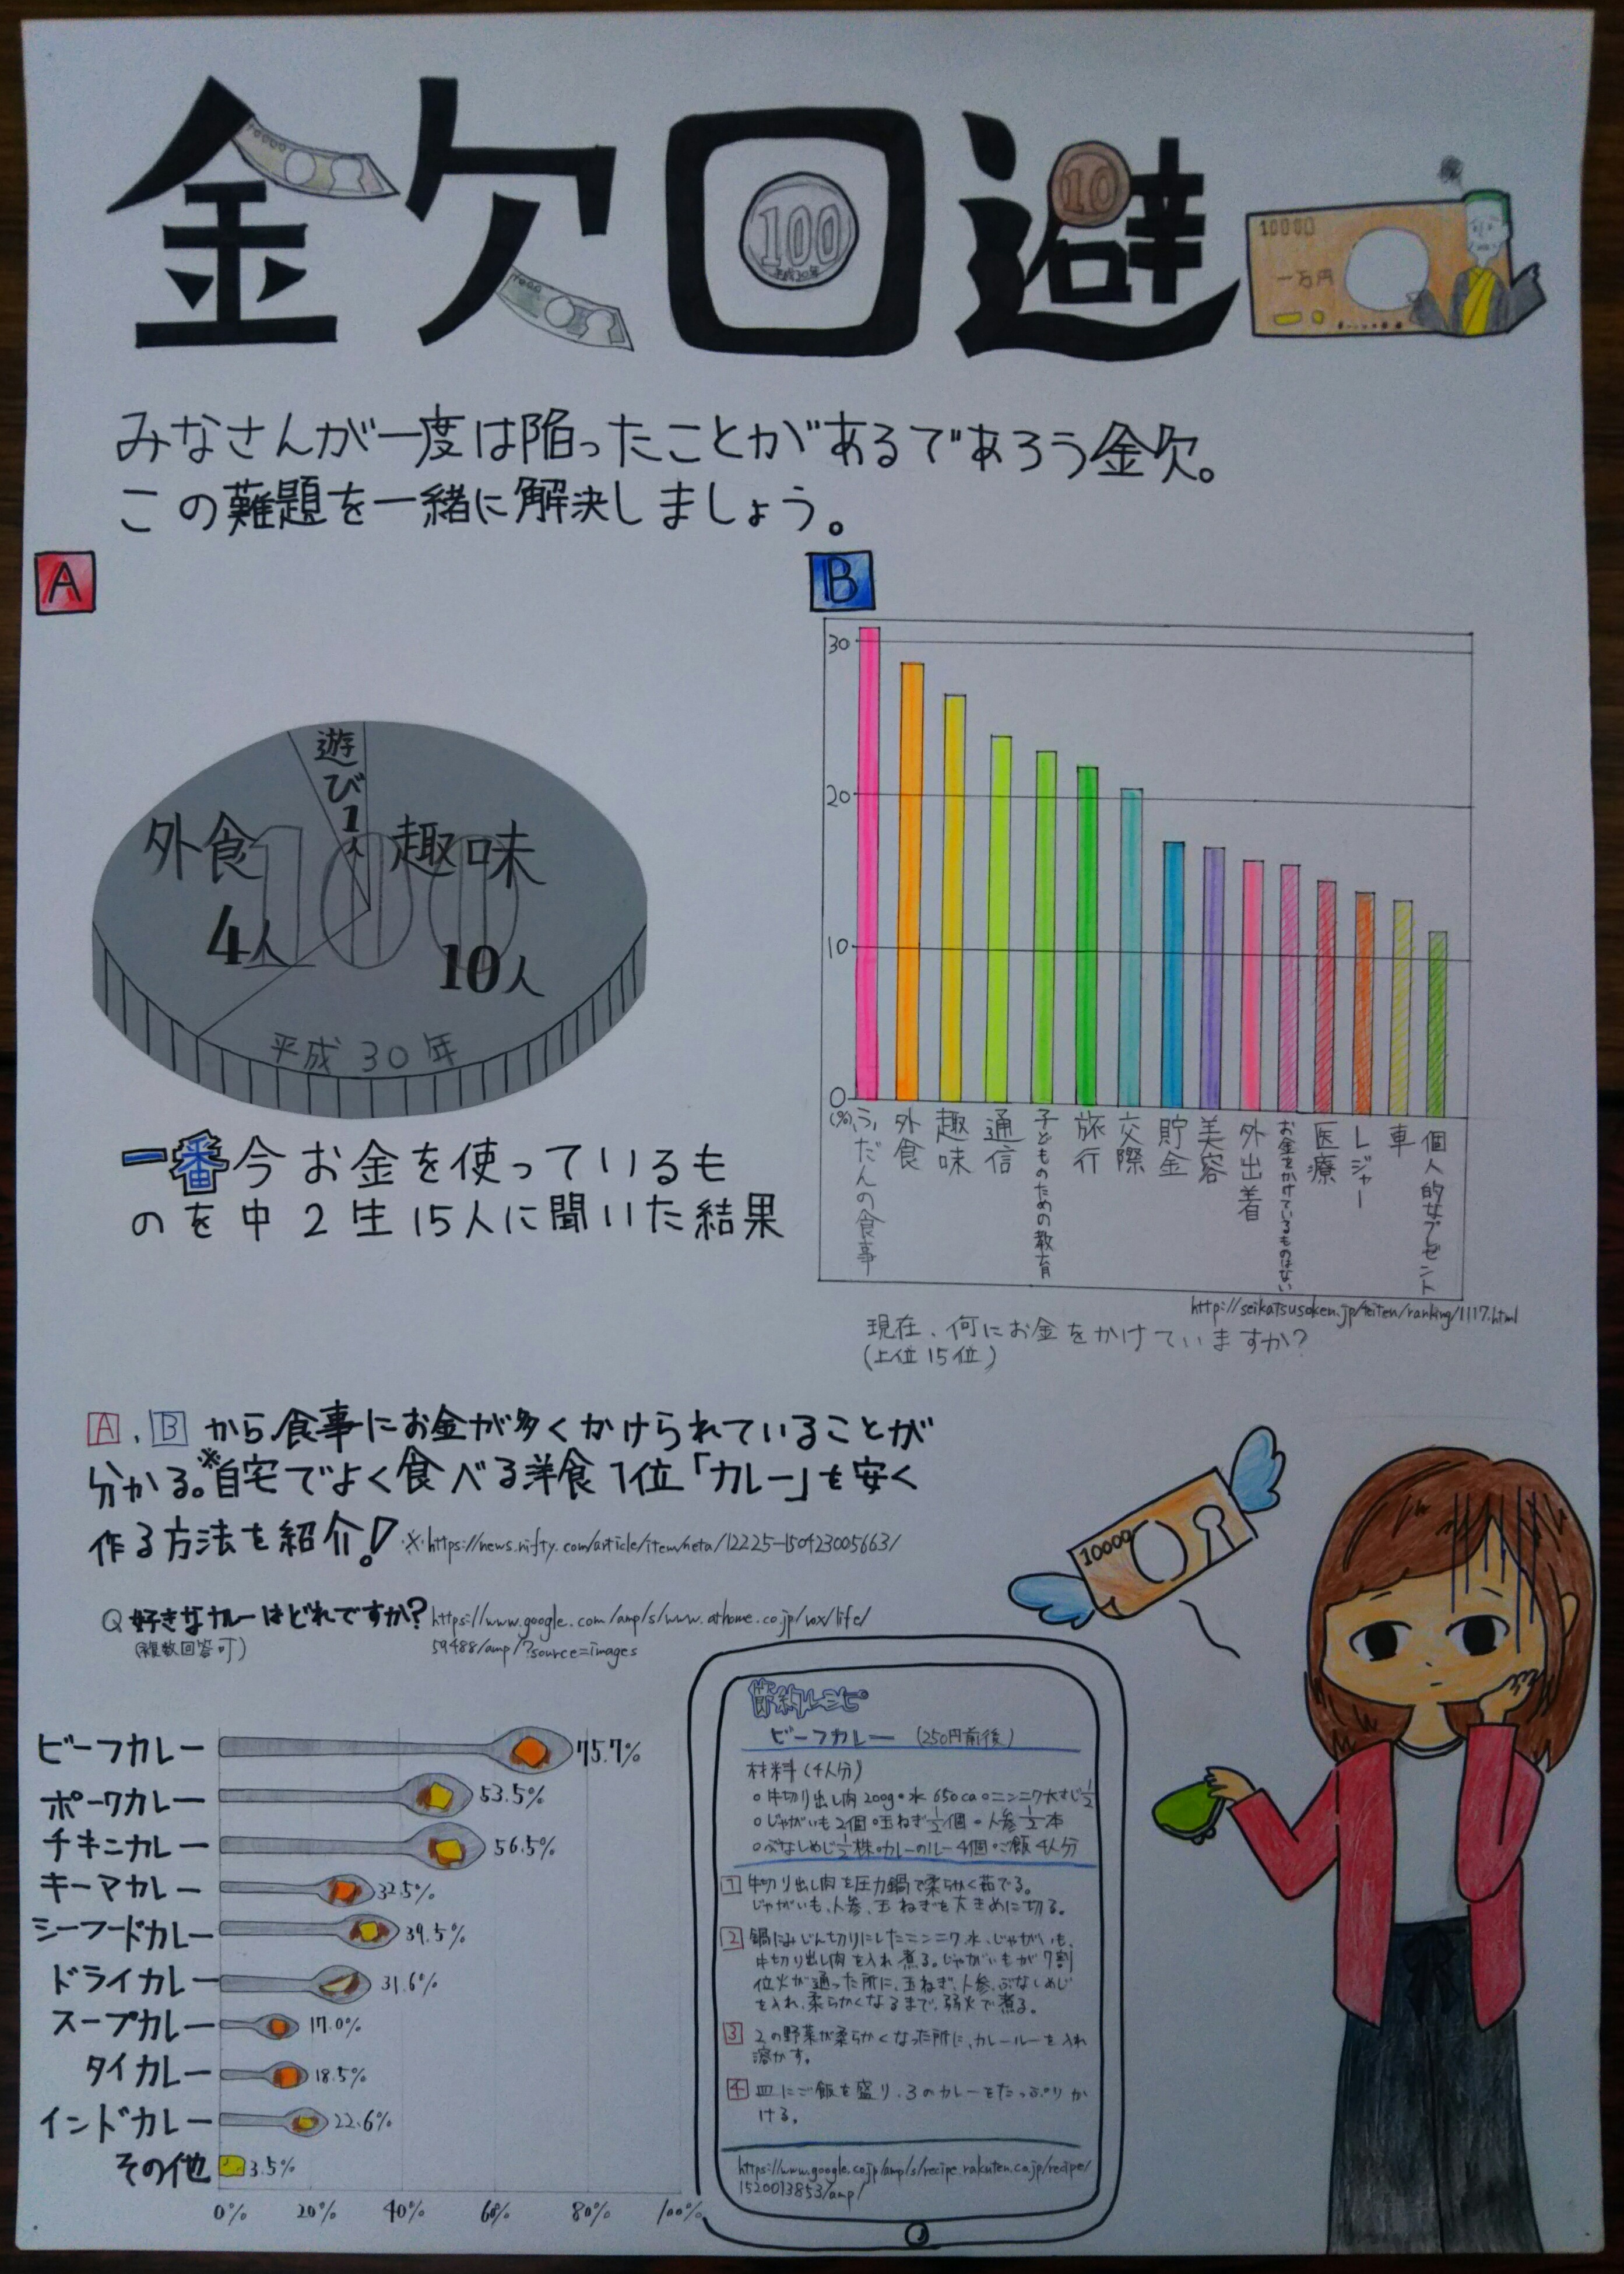 金欠回避
10000
100
平成30年
10
1000
10000
一万円
みなさんが一度は陥ったことがあるであろう金欠。
この難題を一緒に解決しましょう。
A
遊び1人
外食
4人
趣味
10人
100
平成30年
一番今お金を使っているも
のを中2生15人に聞いた結果
B
30
20
10
0
(%)
ふだんの食事
外食
趣味
通信
子どものための教育
旅行
交際
貯金
美容
外出着
お金をかけているものはない
医療
レジャー
車
個人的なプレゼント
http://seikatsusoken.jp/teiten/ranking/1117.html
現在、何にお金をかけていますか?
(上位15位)
A、Bから食事にお金が多くかけられていることが
分かる。※自宅でよく食べる洋食1位「カレー」を安く
作る方法を紹介!※https://news.nifty.com/article/item/neta/12225-150423005663/
Q 好きなカレーはどれですか? https://www.google.com/amp/s/www.athome.co.jp/vox/life/
(複数回答可) 59488/amp/?source=images
ビーフカレー 75.7%
ポークカレー 53.5%
チキンカレー 56.5%
キーマカレー 32.5%
シーフードカレー 39.5%
ドライカレー 31.6%
スープカレー 17.0%
タイカレー 18.5%
インドカレー 22.6%
その他 3.5%
0% 20% 40% 60% 80% 100%
10000
節約レシピ
ビーフカレー (250円前後)
材料(4人分)
○牛切り出し肉200g ○水 650cc ○ニンニク大さじ1/2
○じゃがいも2個 ○玉ねぎ1/2個 ○人参1/2本
○ぶなしめじ1/2株 ○カレーのルー4個 ○ご飯4人分
1 牛切り出し肉を圧力鍋で柔らかく茹でる。
じゃがいも、人参、玉ねぎを大きめに切る。
2 鍋にみじん切りにしたニンニク、水、じゃがいも、
牛切り出し肉を入れ煮る。じゃがいもが7割
位火が通った所に、玉ねぎ、人参、ぶなしめじ
を入れ、柔らかくなるまで、弱火で煮る。
3 2の野菜が柔らかくなった所に、カレールーを入れ
溶かす。
4 皿にご飯を盛り、3のカレーをたっぷりか
ける。
https://www.google.co.jp/amp/s/recipe.rakuten.co.jp/recipe/
1520013853/amp/